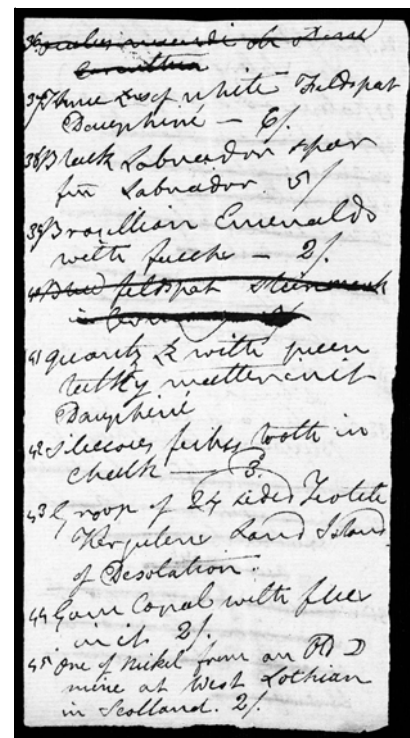 36 oculus mundi or
37 Three & of white Feldspat
Dauphiné — 6/.
38 Black Labrador spar
fm Labrador. 5/
39 Brazillian Emeralds
with — 2/.
40 Blue feldspat
in
41 quartz & with green
talky matter in it
Dauphiné
42 Siliceous tooth in
chalk — 3.
43 Groop of 24 sided Zeolite
Kerguelens Land Island
of Desolation.
44 Gum Copal with flies
in it 2/.
45 One of Nickel from an old
mine at West Lothian
in Scotland. 2/.